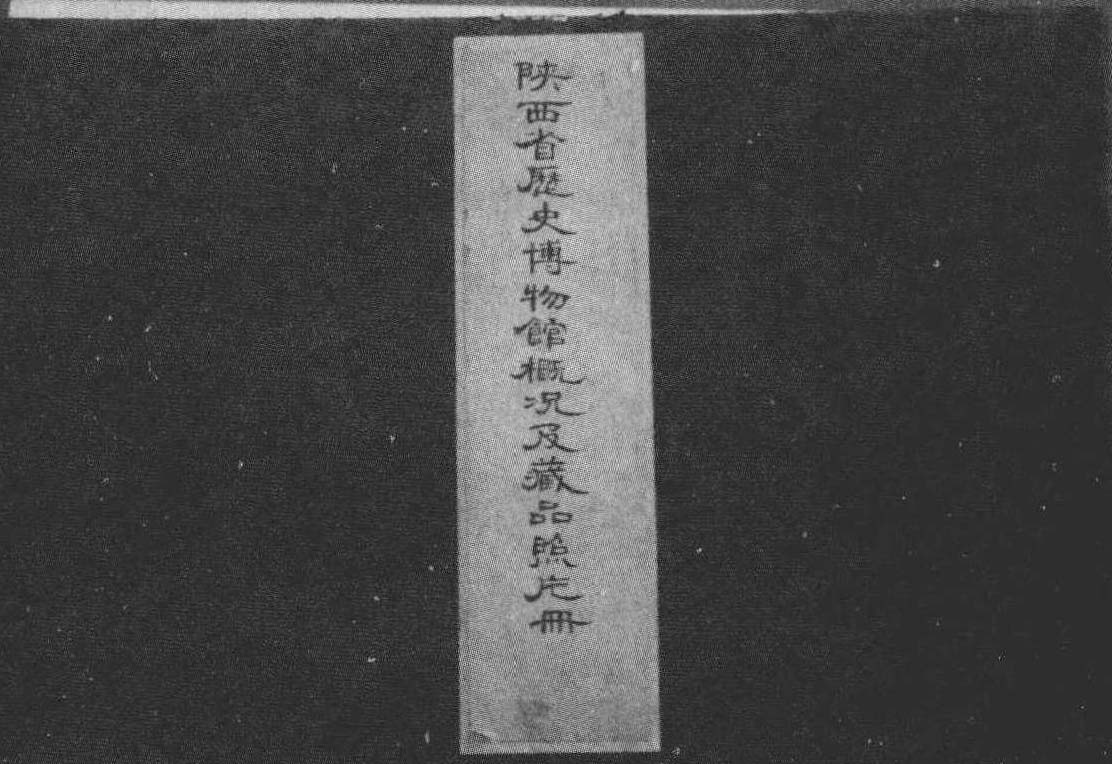 陝西省歷史博物館概况及藏品照片冊